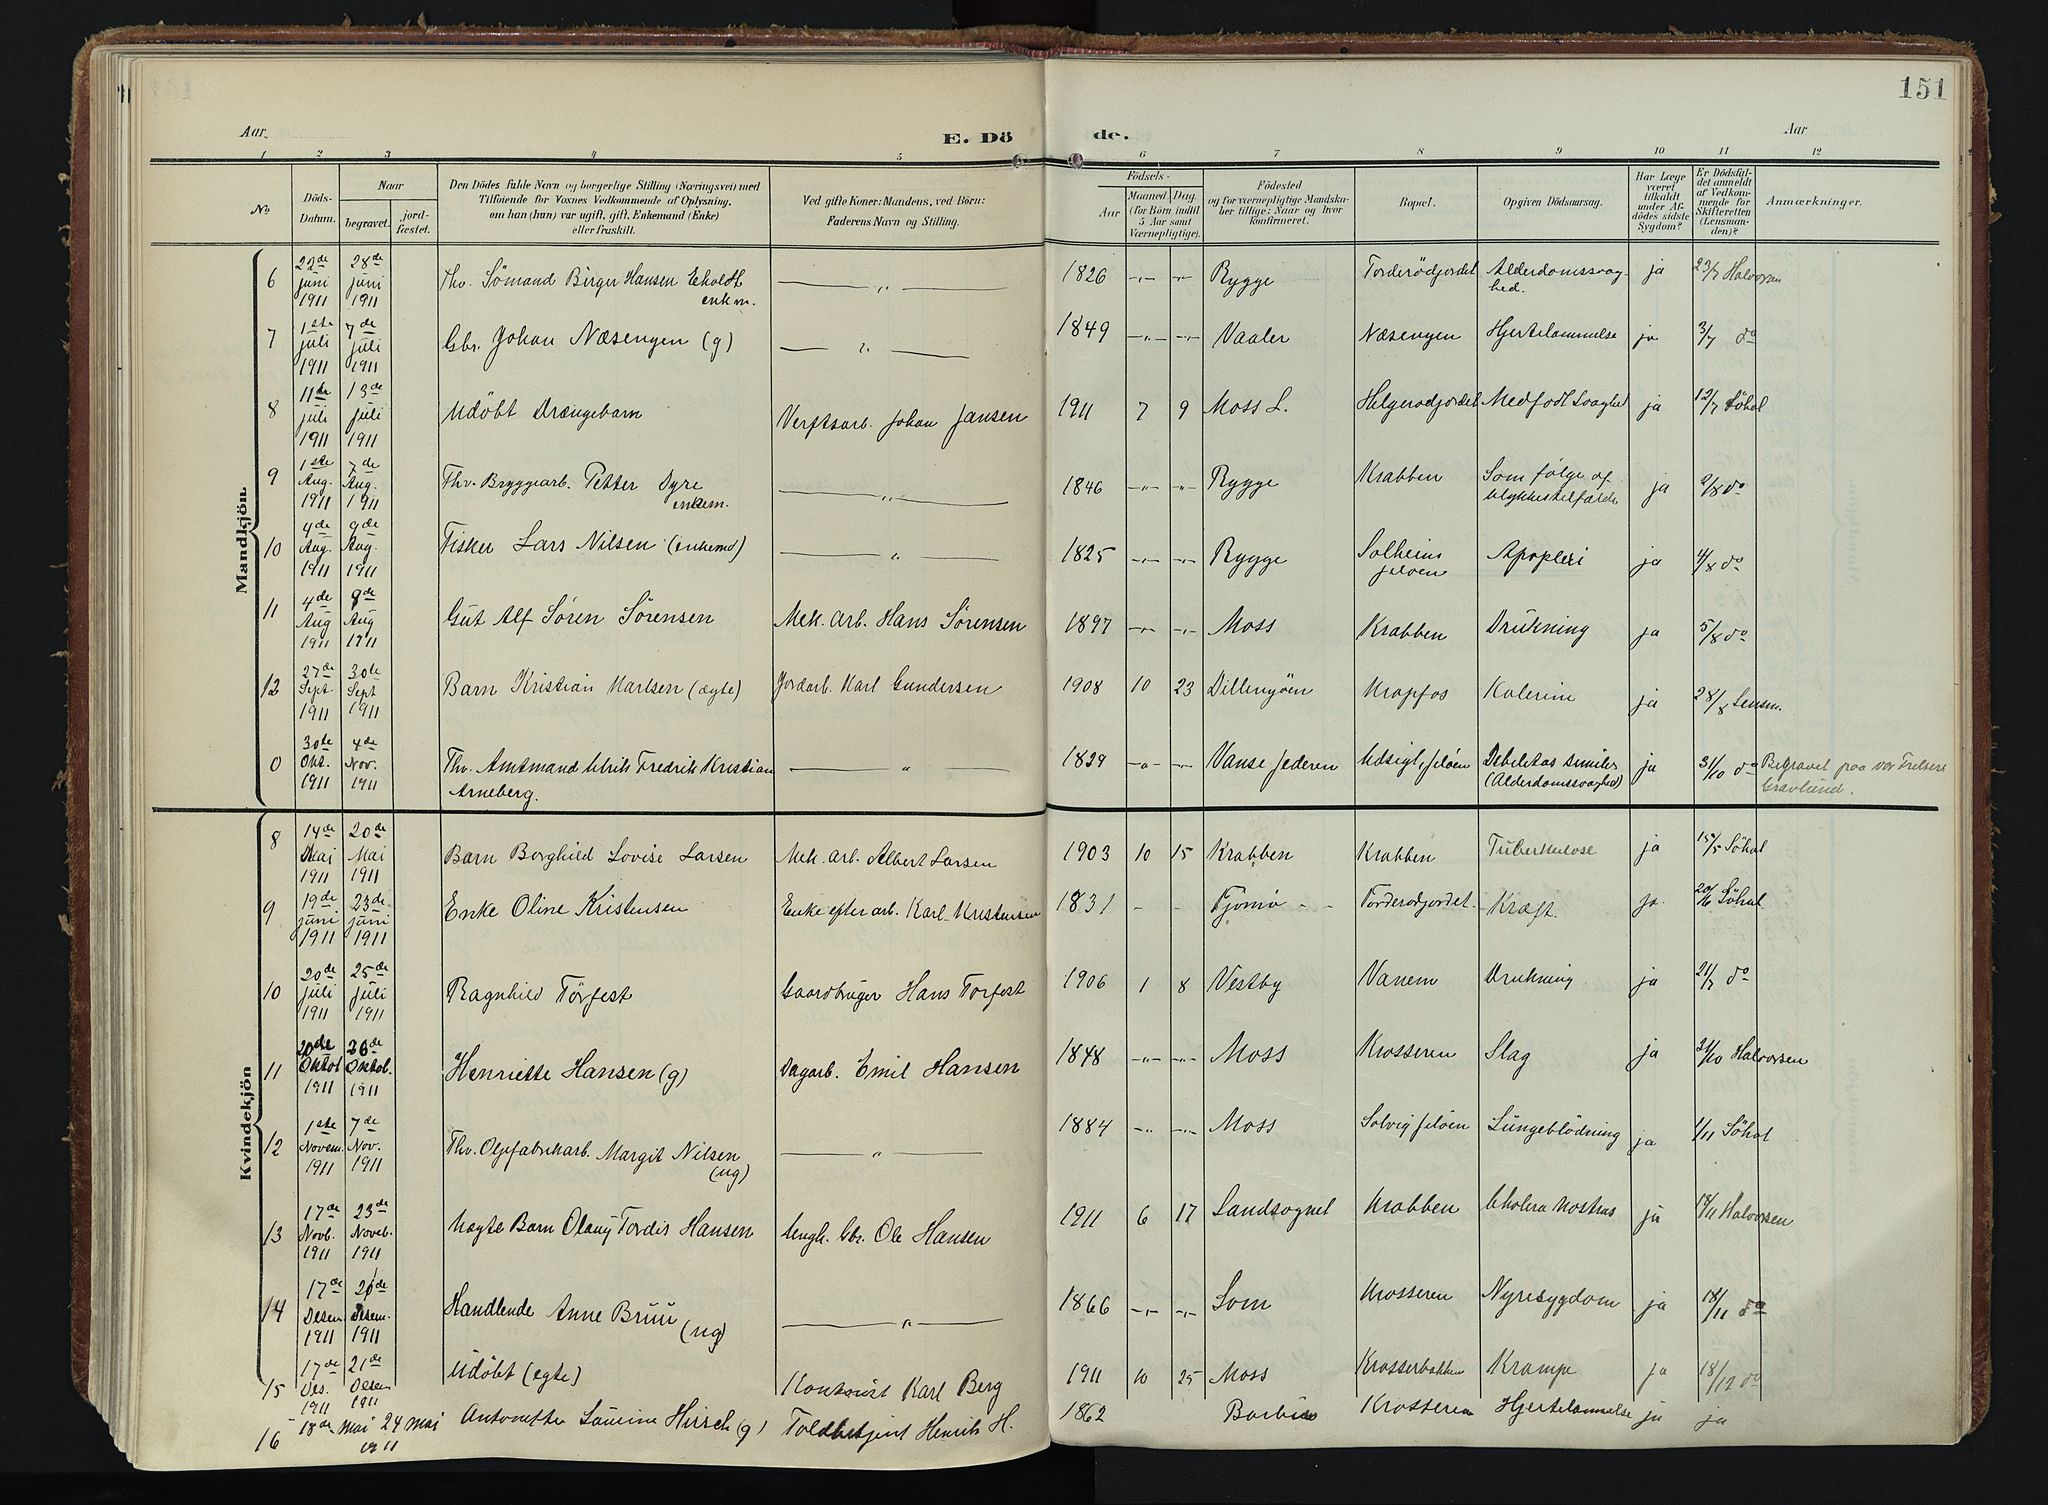 151
Aar
E. Dö de.
Aar
1 2 3 4 5 6 7 8 9 10 11 12
No
Döds-
Datum.
Naar
begravet.
jord-
fæstet.
Den Dödes fulde Navn og borgerlige Stilling (Næringsvei) med
Tilföiende for Voxnes Vedkommende af Oplysning,
om han (hun) var ugift, gift, Enkemand (Enke)
eller fraskilt.
Ved gifte Koner: Mandens, ved Börn:
Faderens Navn og Stilling.
Födsels-
Aar
Maaned Dag.
(for Börn indtil
5 Aar samt
Værnepligtige).
Födested
og for værnepligtige Mandska-
ber tillige: Naar og hvor
konfirmeret.
Bopæl.
Opgiven Dödsaarsag.
Har Læge
været
tilkaldt
under Af-
dödes sidste
Sygdom?
Er Dödsfal-
det anmeldt
af Vedkom-
mende for
Skifteretten
(Lensman-
den)?
Anmærkninger.
Mandkjön.
6 22de juni 1911 28de juni 1911 Fhv. Sömand Birger Hansen Ekholdt enkm. — " — 1826 -"- -"- Rygge Torderödjordet Alderdomssvag-hed. ja 23/7 Halvorsen
7 1ste juli 1911 7de juli 1911 Gbr. Johan Næsengen (g) — " — 1849 -"- -"- Vaaler Næsengen Hjertelammelse ja 3/7 do
8 11te juli 1911 13de juli 1911 Udöbt Drængebarn Verftsarb. Johan Jansen 1911 7 9 Moss L. Helgerodjordet Medfodt Svaghed ja 12/7 Söhol
9 1ste Aug. 1911 7de Aug. 1911 Fhv. Bryggearb. Petter Dyre enkem. — " — 1846 -"- -"- Rygge Krabben Som følge af ulykkestilfælde ja 2/8 do
10 4de Aug. 1911 9de Aug. 1911 Fisker Lars Nilsen (enkemd) — " — 1825 -"- -"- Rygge Solheim jeloen Apoplexi ja 4/8 do
11 4de Aug 1911 8de Aug 1911 Gut Alf Sören Sörensen Mek. Arb. Hans Sörensen 1897 -"- -"- Moss Krabben Drukning ja 5/8 do
12 27de Sept. 1911 30te Sept 1911 Barn Kristian Karlsen (ægte) Jordarb. Karl Gundersen 1908 10 23 Dillingöen Krapfos Kolerine ja 28/8 Lensm.
0 30te Okt. 1911 4de Nov. 1911 Fhv. Amtmand Ulrik Fredrik Kristian Arneberg. — " — 1829 -"- -"- Vanse Jederen Udsigt, jelöen Debilitas senilis (Alderdomssvaghed) ja 31/10 do Begravet paa Vor Frelsers Gravlund.
Kvindekjön
8 14de Mai 1911 20de Mai 1911 Barn Borghild Lovise Larsen Mek. Arb. Albert Larsen 1903 10 15 Krabben Krabben Tuberkulose ja 15/5 Söhol
9 19de juni 1911 23de juni 1911 Enke Oline Kristensen Enke efter arb. Karl Kristensen 1831 - - Tjömö - - Torderodjordet Kræft. ja. 20/6 Söhol
10 20de juli 1911 25de juli 1911 Ragnhild Törfest Gaardbruger Hans Torfest 1906 1 8 Vestby Vanem Drukning ja 21/7 do
11 20de Oktob 1911 26de Oktob. 1911 Henriette Hansen (g) Dagarb. Emil Hansen 1848 -"- -"- Moss Krosseren Slag ja 21/10 Halvorsen
12 1ste Novem. 1911 7de Nov. 1911 Fhv. Oljefabrikarb. Margit Nilsen (ug) — " — 1884 -"- -"- Moss Solvig jelöen Lungeblödning ja 1/11 Söhol
13 17de Novb. 1911 23de Noveb. 1911 Uægte Barn Olaug Tordis Hansen Ungk. Gbr. Ole Hansen 1911 6 17 Landsognet Krabben Cholera Nostras ja 18/11 Halvorsen
14 17de Desem 1911 21de Desem. 1911 Handlende Anne Bruu (ug) — " — 1866 -"- -"- Som Krosseren Nyresygdom ja 18/11 do
15 17de Des. 1911 21de Desem 1911 Udöbt (egte) Kontorist Karl Berg 1911 10 25 Moss Krosserbakken Krampe ja 18/12 do
16 18de Mai 24 Mai 1911 Antonette Laurine Hirsch (g) Toldbetjent Henrik H. 1862 Krosseren Hjertelammelse ja ja